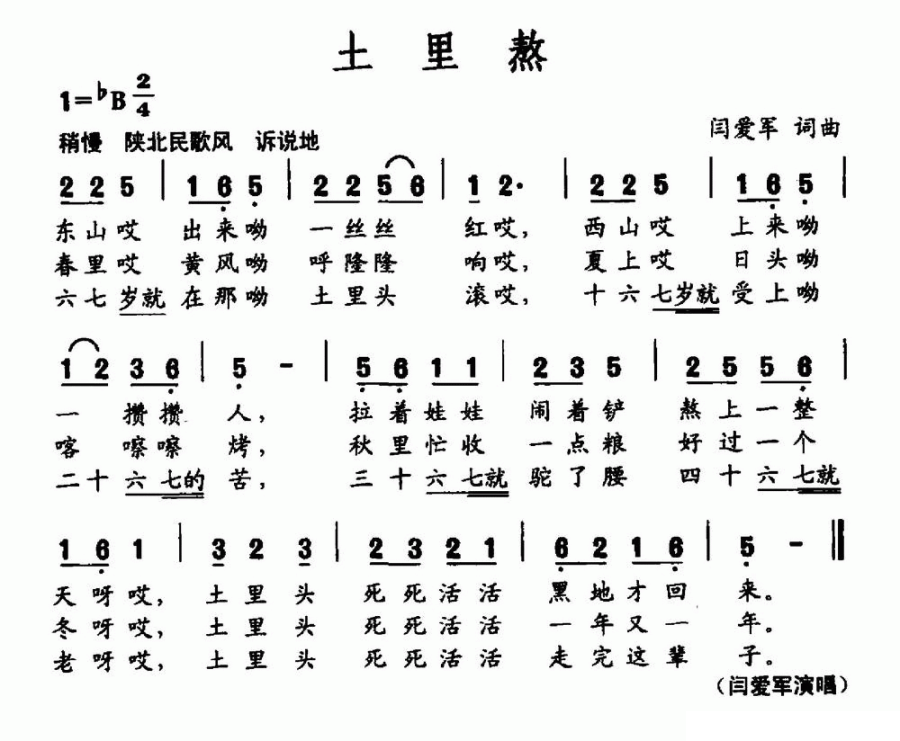 土里熬
1=♭B 2/4
稍慢 陕北民歌风 诉说地
闫爱军 词曲
2 2 5 | 1 6 5 | 2 2 5 6 | 1 2· | 2 2 5 | 1 6 5 |
东山哎 出来呦 一丝丝 红哎, 西山哎 上来呦
春里哎 黄风呦 呼隆隆 响哎, 夏上哎 日头呦
六七岁就在那呦 土里头 滚哎, 十六七岁就受上呦
1 2 3 6 | 5 - | 5 6 1 1 | 2 3 5 | 2 5 5 6 |
一 攒攒 人, 拉着娃娃 闹着铲 熬上一整
喀 嚓嚓 烤, 秋里忙收 一点粮 好过一个
二十六七的苦, 三十六七就驼了腰 四十六七就
1 6 1 | 3 2 3 | 2 3 2 1 | 6 2 1 6 | 5 - ‖
天呀哎, 土里头 死死活活 黑地才回 来。
冬呀哎, 土里头 死死活活 一年又一 年。
老呀哎, 土里头 死死活活 走完这辈 子。
(闫爱军演唱)